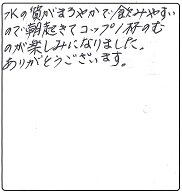 水の質がまろやかで飲みやすい
ので朝起きてコップ1杯のむ
のが楽しみになりました。
ありがとうございます。